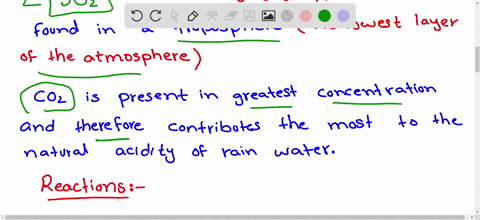 SO2
found in a troposphere ( lowest layer
of the atmosphere)
CO2 is present in greatest concentration
and therefore contributes the most to the
natural acidity of rain water.
Reactions:-